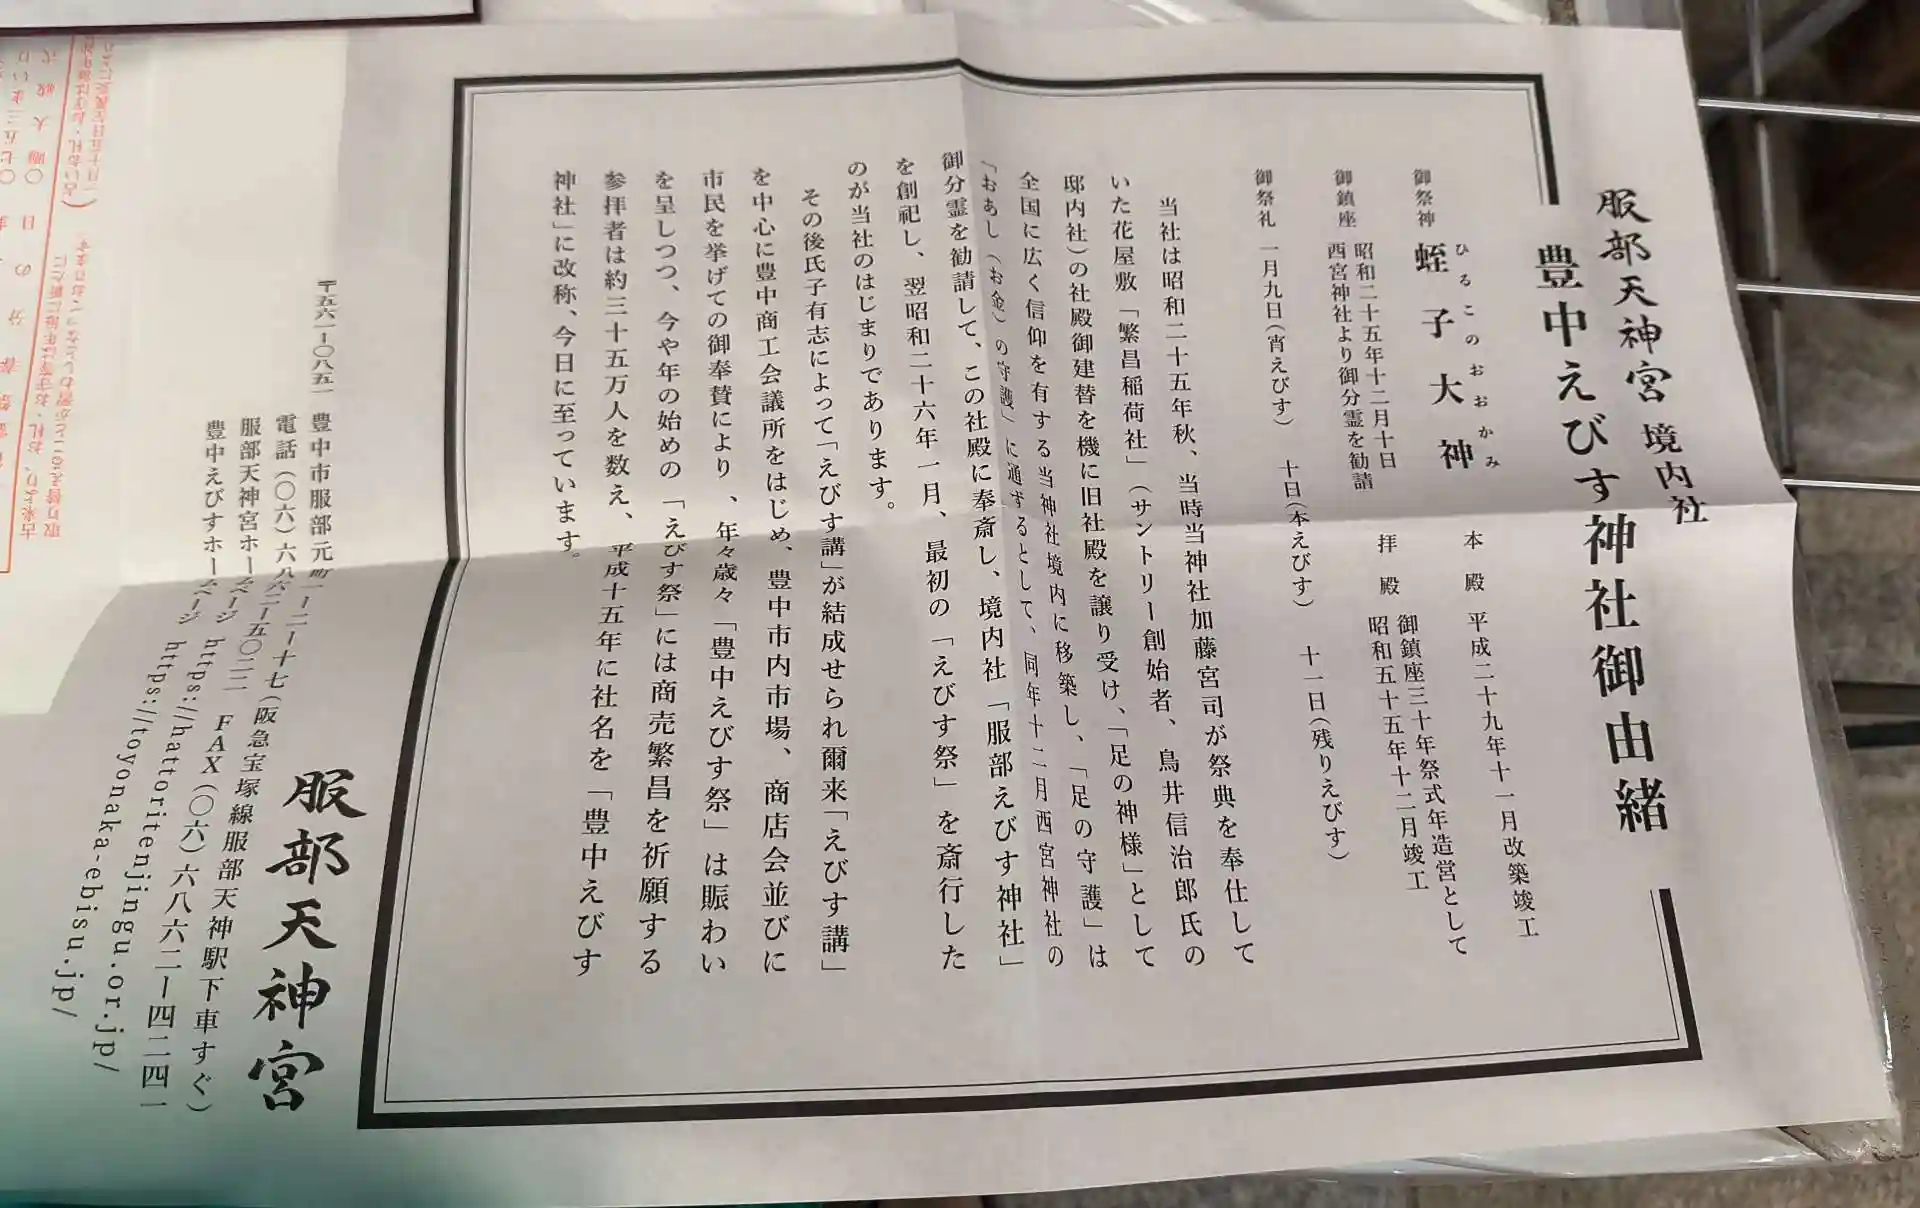 服部天神宮 境内社
豊中えびす神社御由緒
御祭神 蛭子大神
ひるこのおおかみ
御鎮座 昭和二十五年十二月十日
西宮神社より御分霊を勧請
本殿 平成二十九年十一月改築竣工
拝殿 御鎮座三十年祭式年造営として
昭和五十五年十二月竣工
御祭礼 一月九日(宵えびす) 十日(本えびす) 十一日(残りえびす)
当社は昭和二十五年秋、当時当神社加藤宮司が祭典を奉仕して
いた花屋敷「繁昌稲荷社」(サントリー創始者、鳥井信治郎氏の
邸内社)の社殿御建替を機に旧社殿を譲り受け、「足の神様」として
全国に広く信仰を有する当神社境内に移築し、「足の守護」は
「おあし(お金)の守護」に通ずるとして、同年十二月西宮神社の
御分霊を勧請して、この社殿に奉斎し、境内社「服部えびす神社」
を創祀し、翌昭和二十六年一月、最初の「えびす祭」を斎行した
のが当社のはじまりであります。
その後氏子有志によって「えびす講」が結成せられ爾来「えびす講」
を中心に豊中商工会議所をはじめ、豊中市内市場、商店会並びに
市民を挙げての御奉賛により、年々歳々「豊中えびす祭」は賑わい
を呈しつつ、今や年の始めの「えびす祭」には商売繁昌を祈願する
参拝者は約三十五万人を数え、平成十五年に社名を「豊中えびす
神社」に改称、今日に至っています。
服部天神宮
〒五六一ー〇八五一 豊中市服部元町一ー二ー十七(阪急宝塚線服部天神駅下車すぐ)
電話(〇六)六八六二ー五〇二二 FAX(〇六)六八六二ー四二四一
服部天神宮ホームページ https://hattoritenjingu.or.jp/
豊中えびすホームページ https://toyonaka-ebisu.jp/